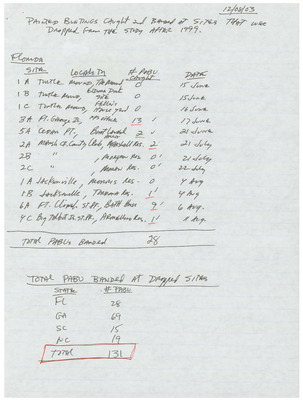 12/08/03
Painted Buntings Caught and Banded at Sites That were
Dropped From the Study After 1999.
Florida
Site Locality # PABU Caught Date
1A Turtle Mound, The Mound 0 15 June
1B Turtle Mound, Site 0 15 June
1C Turtle Mound, 0 16 June
3A Ft. George Is., 13 17 June
5A Cedar Pt., Boat Launch Area 2 21 June
2A Marsh Cr. Cnty Club, Marshall Res. 2 21 July
2B " , Res 0 21 July
2C " , Res. 0 22 July
1A Jacksonville, Morris Res. 0 4 Aug
1B Jacksonville, Thomas Res. 1 4 Aug
6A Ft. Clinch St. Pk., Bath House 9 6 Aug.
4C Big Talbot Is. St. Pk., Res. 1 8 Aug.
Total PABUs Banded 28
Total PABU Banded At Dropped Sites
State # PABU
FL 28
GA 69
SC 15
NC 19
Total 131